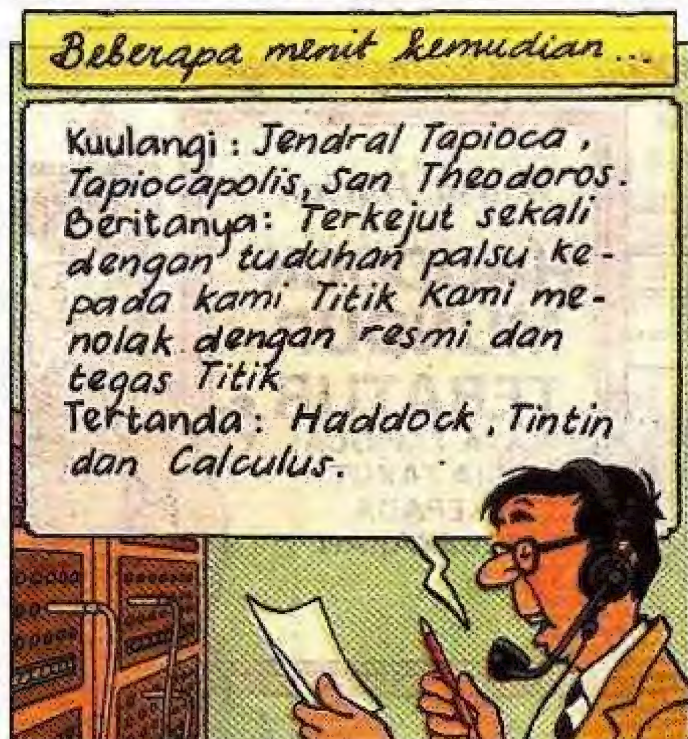 Beberapa menit kemudian...
Kuulangi : Jendral Tapioca,
Tapiocapolis, San Theodoros.
Beritanya: Terkejut sekali
dengan tuduhan palsu ke-
pada kami Titik Kami me-
nolak dengan resmi dan
tegas Titik
Tertanda : Haddock, Tintin
dan Calculus.